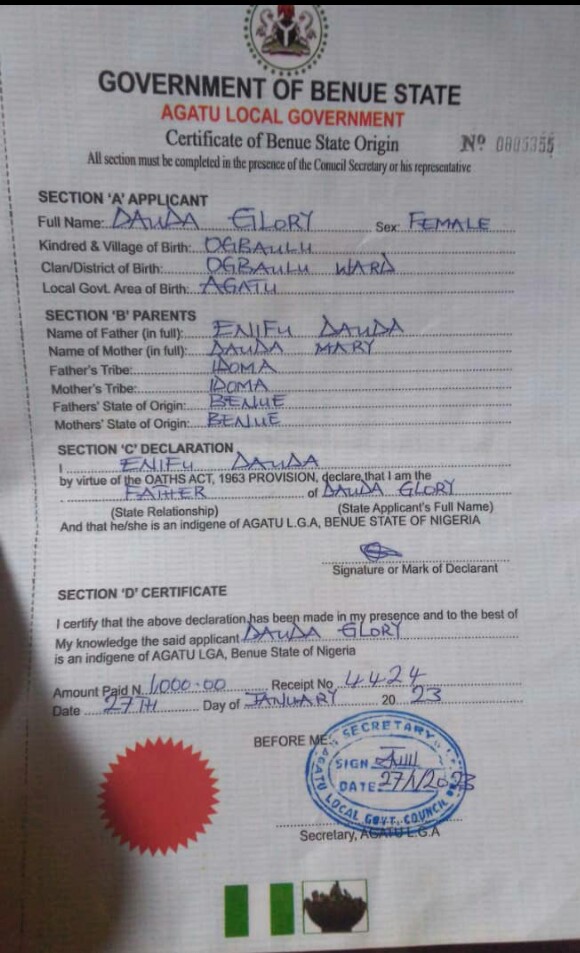 GOVERNMENT OF BENUE STATE
AGATU LOCAL GOVERNMENT
Certificate of Benue State Origin Nº 0005355
All section must be completed in the presence of the Conucil Secretary or his representative
SECTION 'A' APPLICANT
Full Name: DAUDA GLORY Sex: FEMALE
Kindred & Village of Birth: OGBAULU
Clan/District of Birth: OGBAULU WARD
Local Govt. Area of Birth: AGATU
SECTION 'B' PARENTS
Name of Father (in full): ENIFU DAUDA
Name of Mother (in full): DAUDA MARY
Father's Tribe: IDOMA
Mother's Tribe: IDOMA
Fathers' State of Origin: BENUE
Mothers' State of Origin: BENUE
SECTION 'C' DECLARATION
I ENIFU DAUDA
by virtue of the OATHS ACT, 1963 PROVISION, declare,that I am the
FATHER of DAUDA GLORY
(State Relationship) (State Applicant's Full Name)
And that he/she is an indigene of AGATU L.G.A, BENUE STATE OF NIGERIA
Signature or Mark of Declarant
SECTION 'D' CERTIFICATE
I certify that the above declaration has been made in my presence and to the best of
My knowledge the said applicant DAUDA GLORY
is an indigene of AGATU LGA, Benue State of Nigeria
Amount Paid N 1,000.00 Receipt No 4424
Date 27TH Day of JANUARY 20 23
BEFORE ME:
SECRETARY
SIGN
DATE 27/1/2023
AGATU LOCAL GOVT. COUNCIL
Secretary, AGATU L.G.A